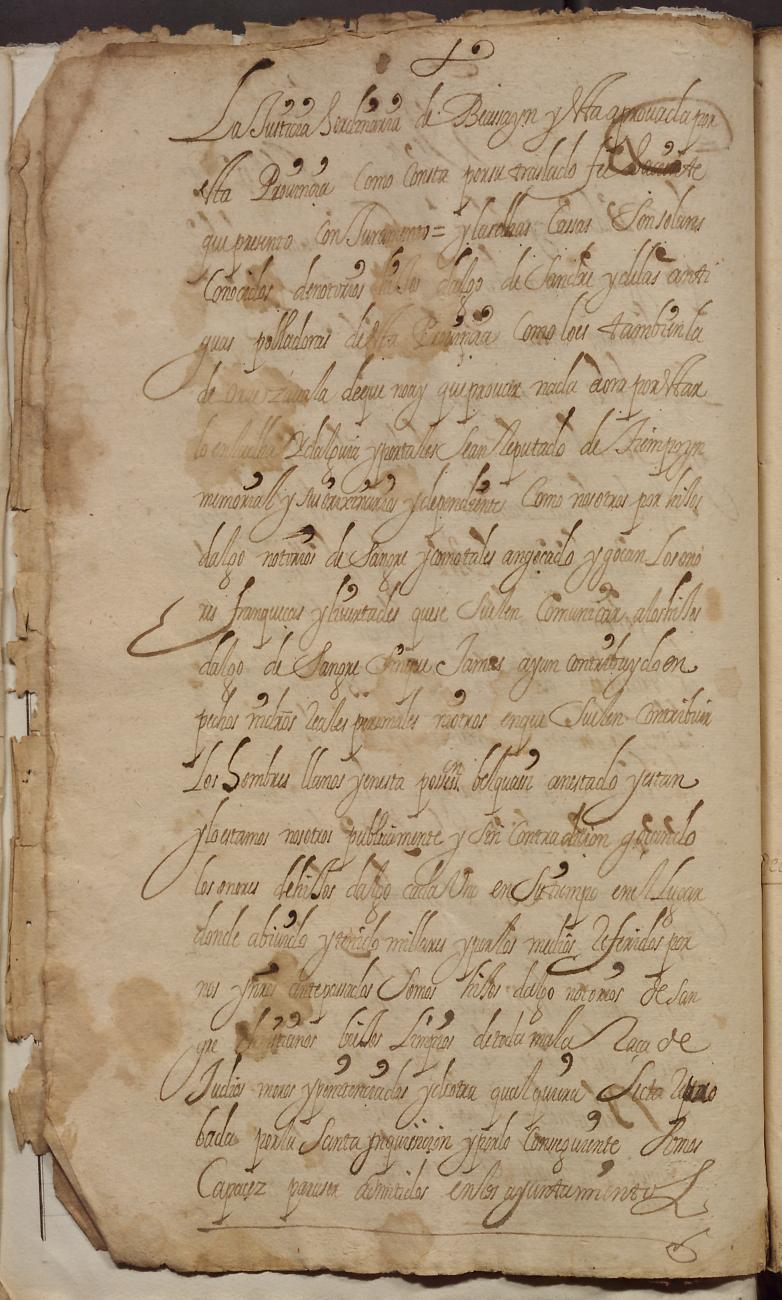 La Justicia hordinaria de Beasayn y esta aprovada por
esta Provincia como consta por su traslado fee haciente
que presento con Juramento = y las dichas Cassas son solares
Conocidos de notorios hijos dalgo de Sangre y de las anti
guas pobladoras desta Provincia como lo es tambien la
de deque no ay que provar nada aora por star
lo en la dha ydalguia y por tales sean Reputado de Tiempo yn
memorial y sus orixinarios y dependientes Como nosotros por hijos
dalgo notorios de Sangre y como tales an goçado y goçan Los ono
res franqueças y livertades que se suelen Comunicar a los hijos
dalgo de Sangre sin que Jamas ayan contribuydo en
pechos ni dros Reales personales ni otros en que suelen Contribuir
Los hombres llanos y en esta posesion bel quasi an estado y estan
y lo estamos nosotros publicamente y sin Contradicion goçando
los onores de hijos dalgo cada Uno en su tiempo en el Lugar
donde a bivido y tenido millares y por los medios Referidos por
nos y nros antepasados Somos hijos dalgo notorios de San
gre christianos biejos Limpios de toda mala Raça de
Judios moros y penitenciados y de otra qualquiera Secta Repro
bada por la Santa ynquisicion y por lo Consiguiente Somos
Capaçez para ser admitidos en los ayuntamientos